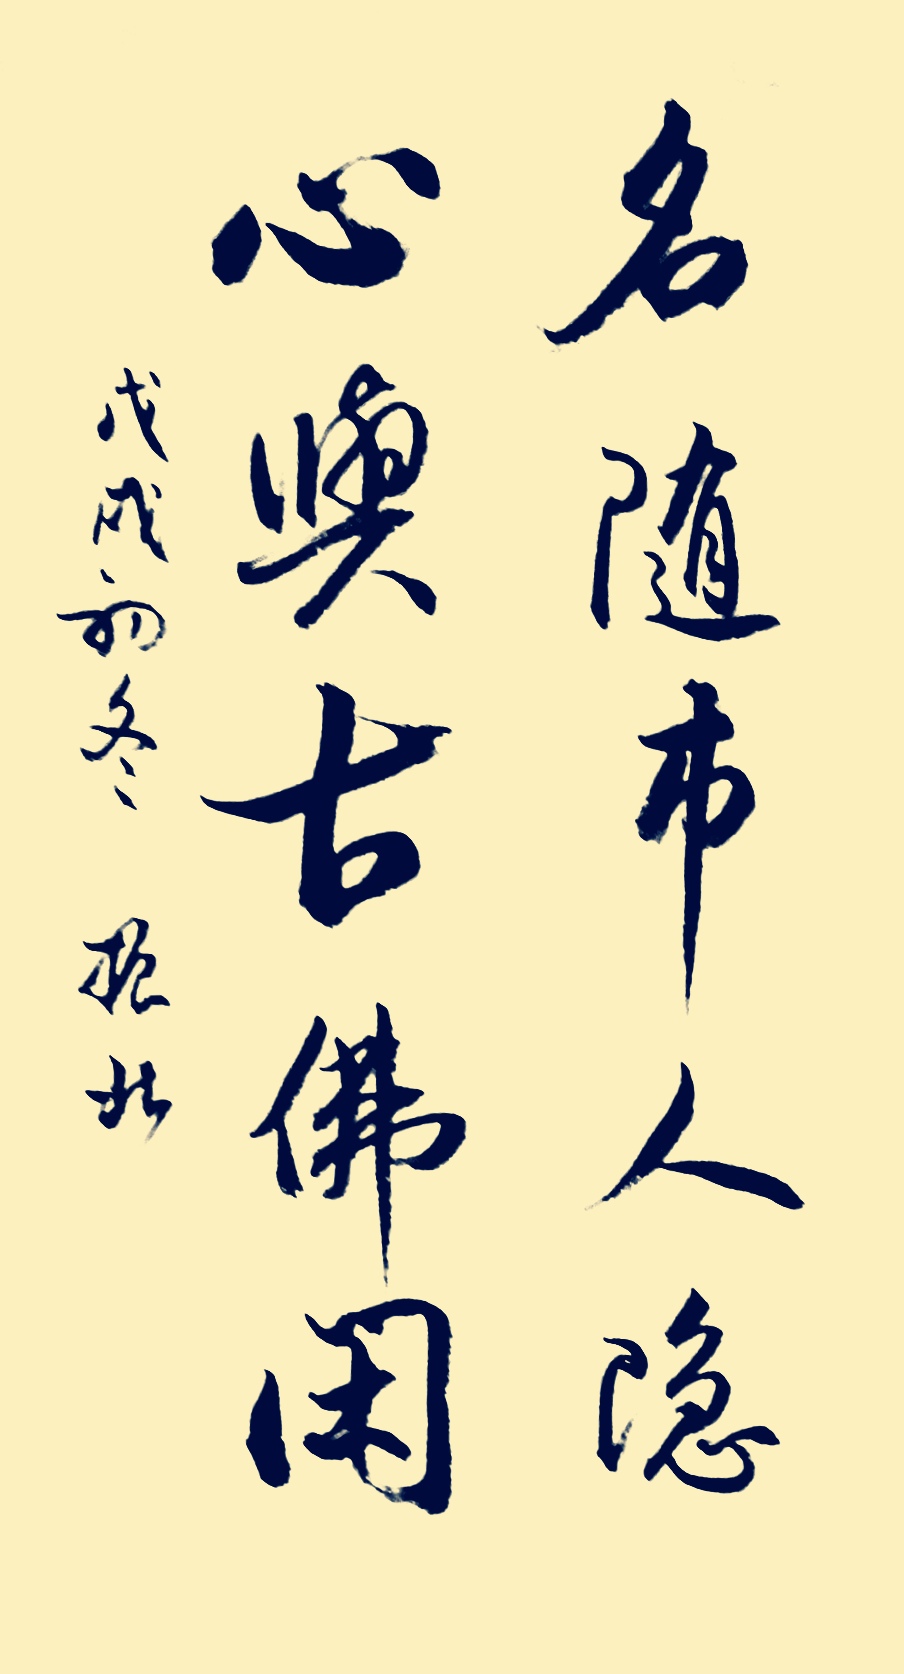 名随市人隐
心與古佛闲
戊戌初冬 振北